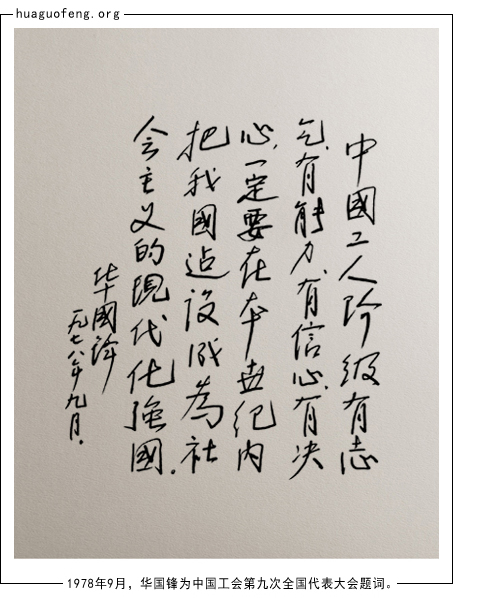 huaguofeng.org
中國工人阶级有志
气、有能力、有信心、有决
心,一定要在本世纪内
把我國建设成為社
会主义的現代化強國.
华國锋
一九七八年九月.
1978年9月，华国锋为中国工会第九次全国代表大会题词。